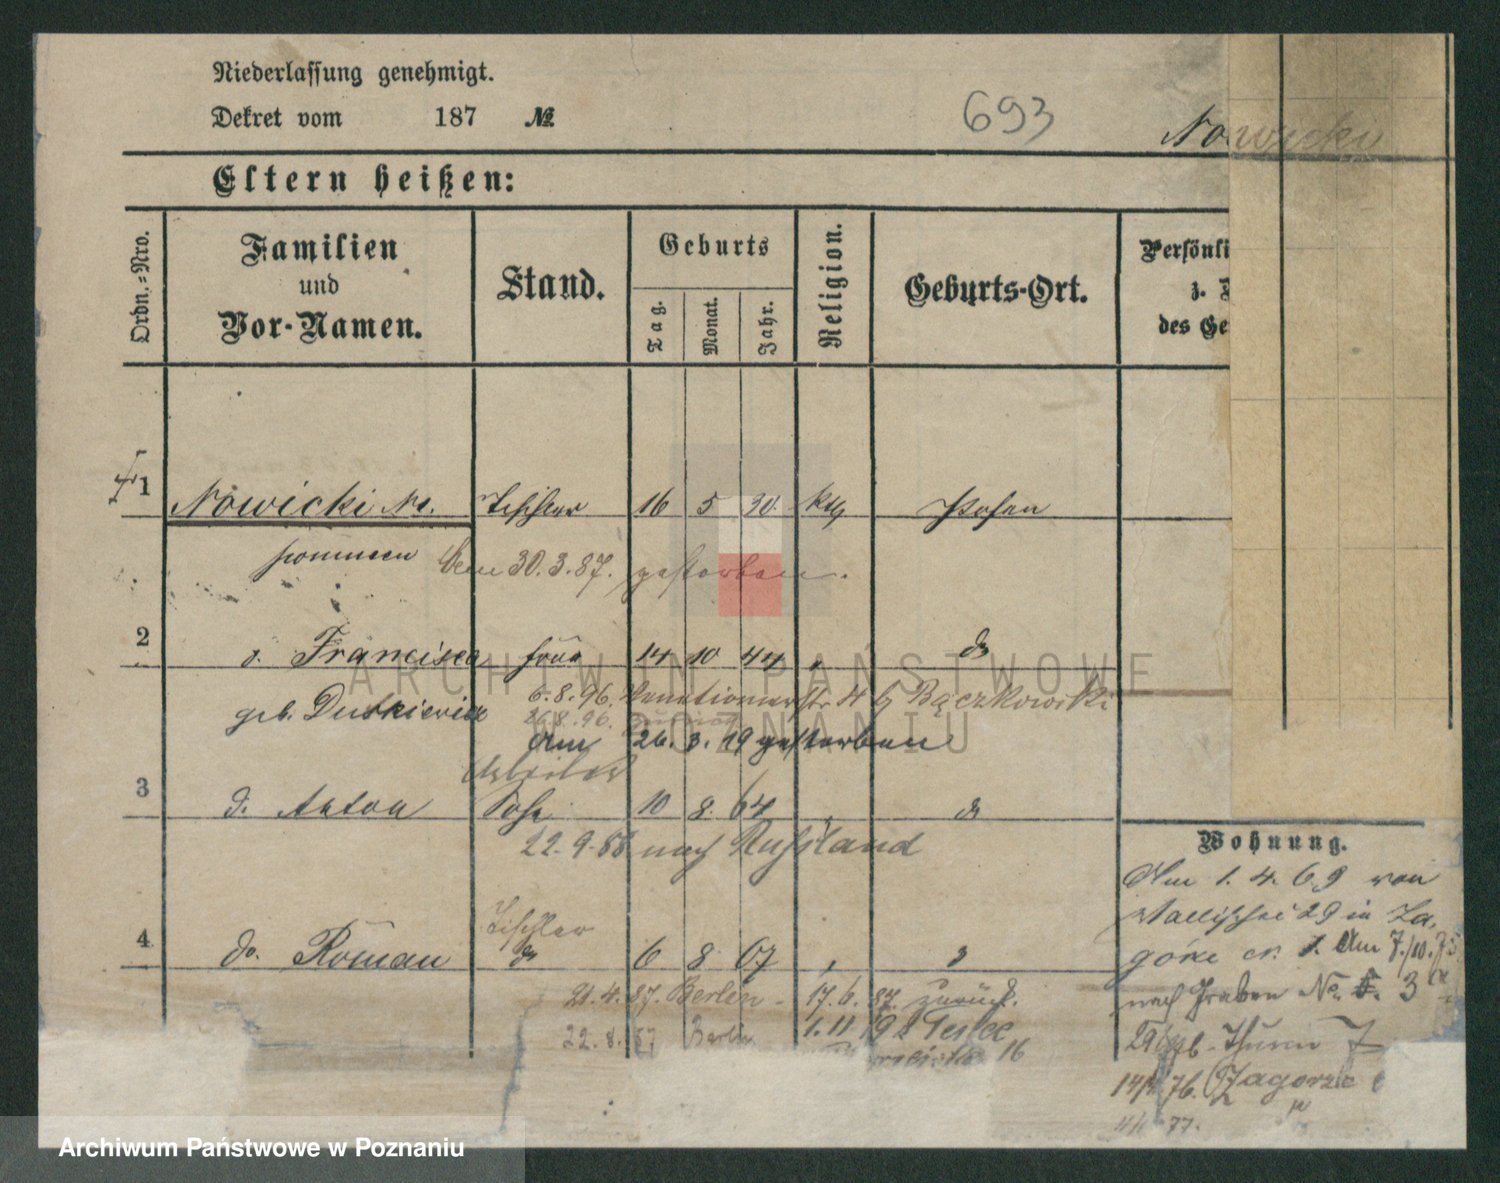 Niederlassung genehmigt.
Dekret vom 187 №
693
Nowicki
Eltern heißen:
Ordn.=Nro.
Familien
und
Vor-Namen.
Stand.
Geburts
Tag.
Monat.
Jahr.
Religion.
Geburts-Ort.
Persönli
z.
des Ge
1 Nowicki Tischler 16 5 30. kth. Posen
30.3.87. gestorben.
2 Francisca Frau 14 10 44 do
geb. 6.8.96. 4 b Bączkowski
26.8.96.
Am 26. 3. 19 gestorben
Arbeiter
3 d. Anton Sohn 10 8. 64 do
22.9.88 nach Russland
Tischler
4 do. Roman do 6 8 67
21.4.87. Berlin - 17.6.87 zurück.
22.8.87 Berlin 1.11
16
Wohnung.
Am 1. 4. 69 von
Wallischei 29 in Za-
górze Am 7./10.75
nach Graben No. 3
Thurm 7
14/ 76. Zagorze
77.
ARCHIWUM PAŃSTWOWE
W POZNANIU
Archiwum Państwowe w Poznaniu